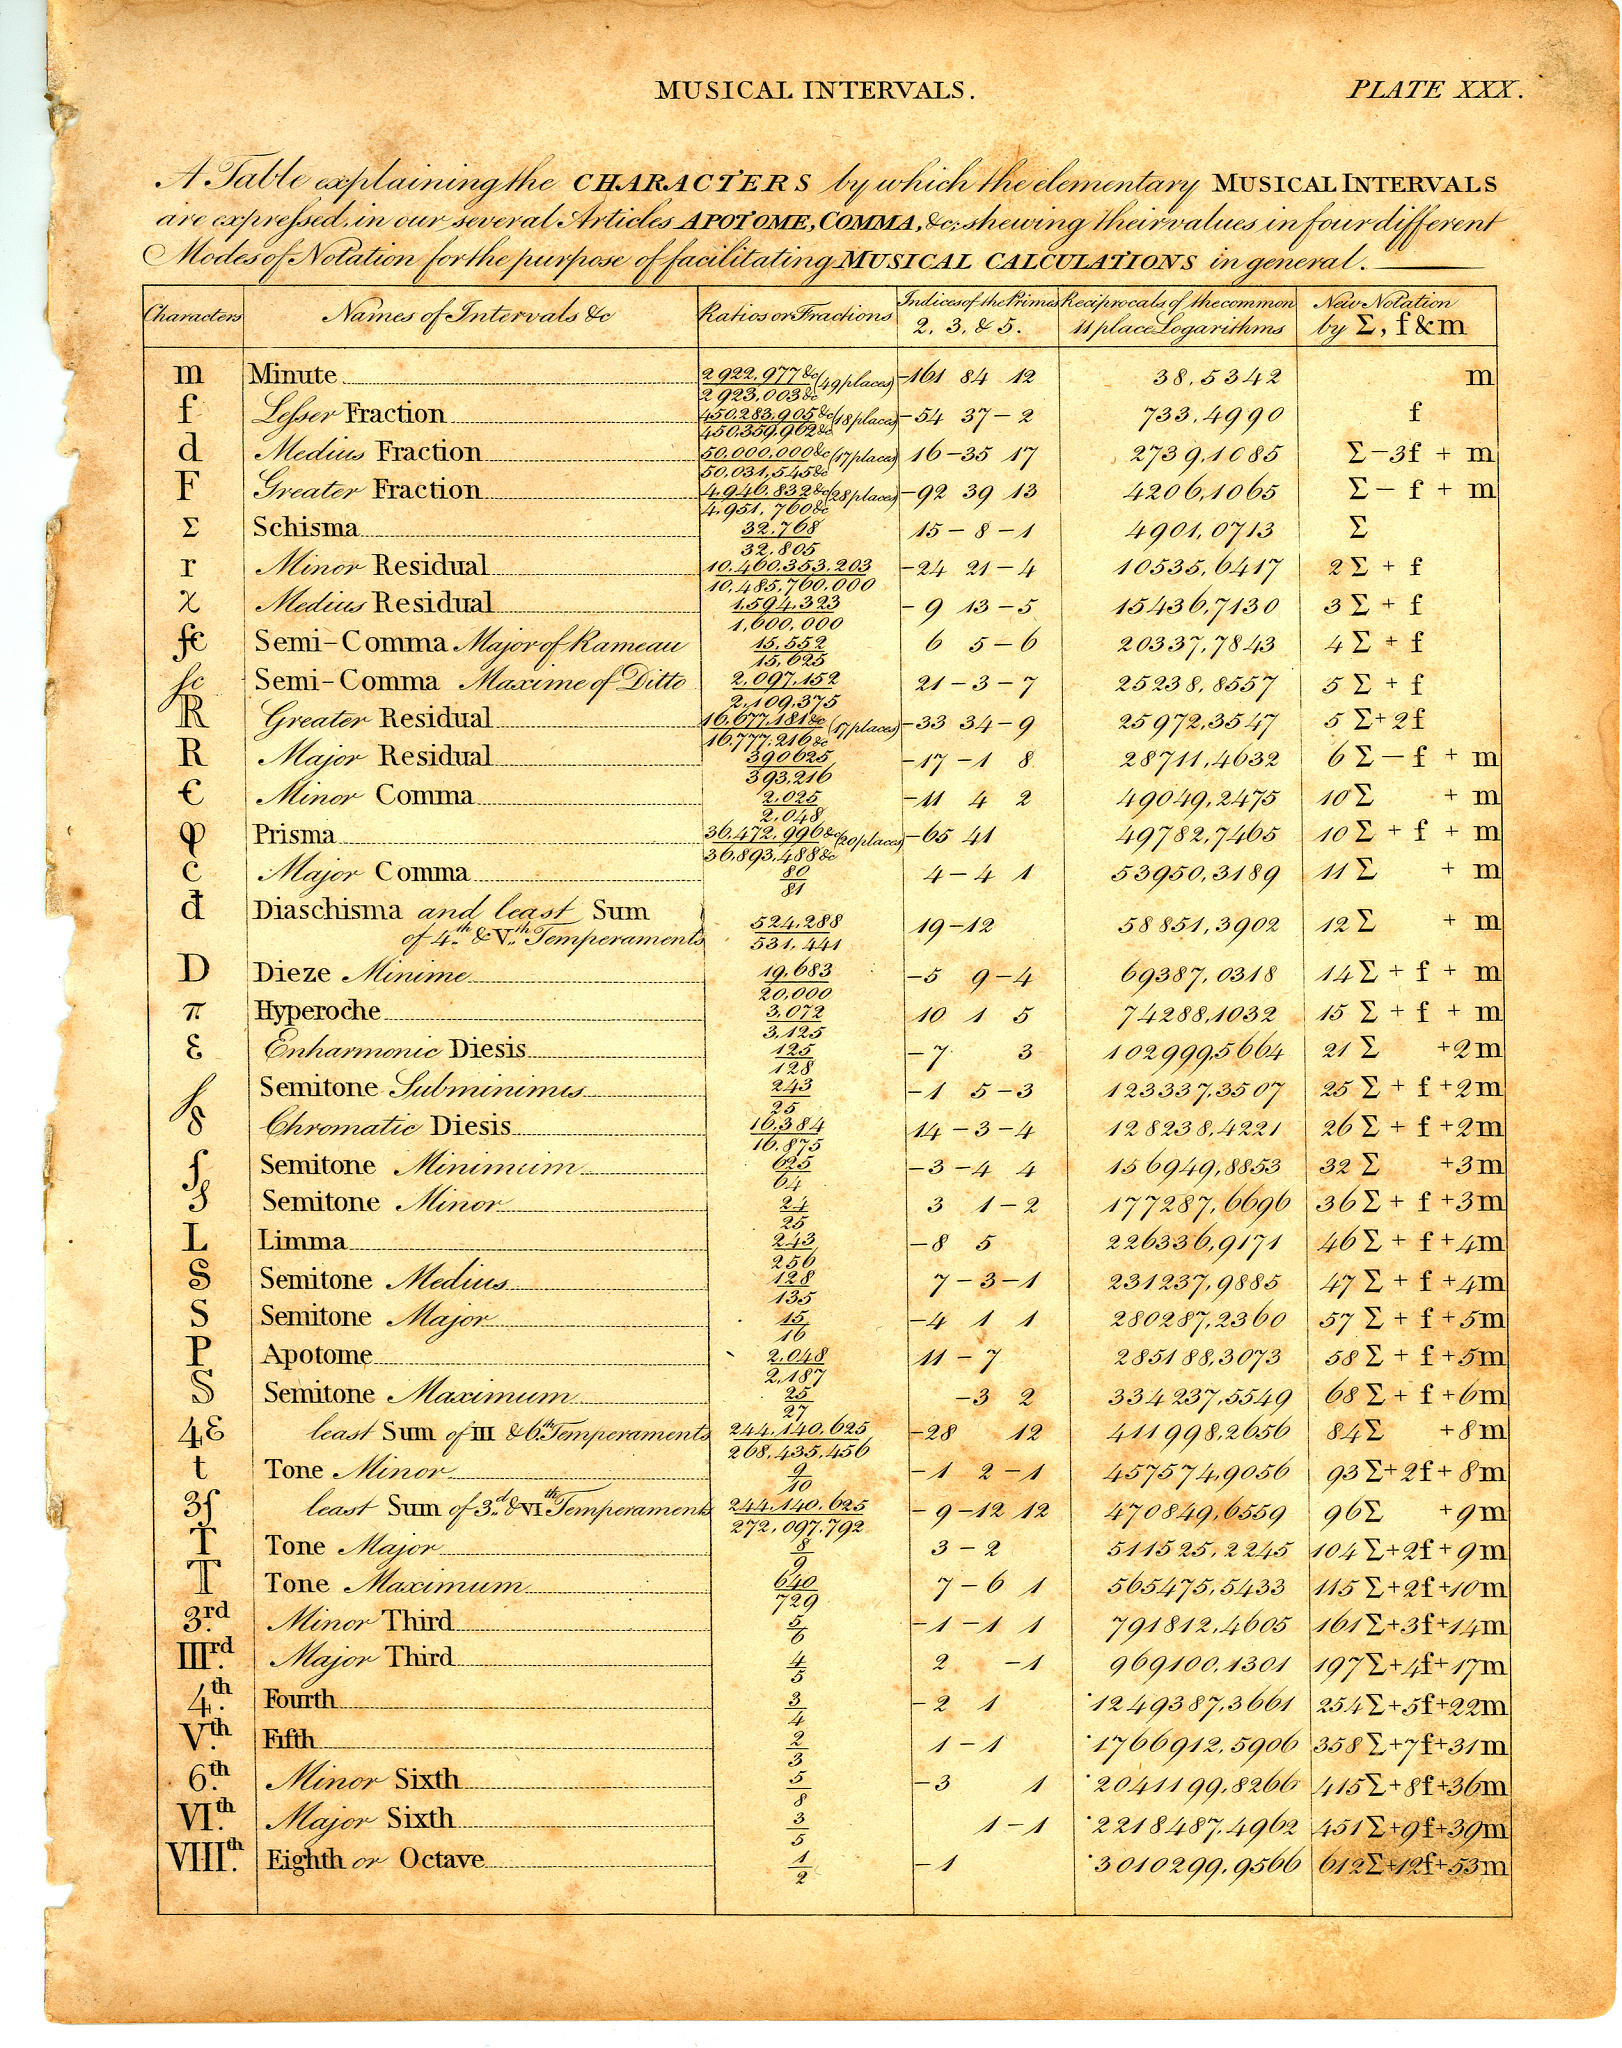 MUSICAL INTERVALS.
PLATE XXX.
A Table explaining the CHARACTERS by which the elementary MUSICAL INTERVALS
are expressed, in our several Articles APOTOME, COMMA, &c; shewing their values in four different
Modes of Notation for the purpose of facilitating MUSICAL CALCULATIONS in general.
Characters Names of Intervals &c Ratios or Fractions Indices of the Primes 2, 3, & 5. Reciprocals of the common 11 place Logarithms New Notation by Σ, f & m
m Minute 2922,977&c/2923,003&c (49 places) -161 84 12 38,5342 m
f Lesser Fraction 450,283,905&c/450,359,962&c (18 places) -54 37-2 733,4990 f
d Medius Fraction 50,000,000&c/50,031,545&c (17 places) 16-35 17 2739,1085 Σ-3f + m
F Greater Fraction 4,946,832&c/4,951,760&c (28 places) -92 39 13 4206,1065 Σ- f + m
Σ Schisma 32,768/32,805 15-8-1 4901,0713 Σ
r Minor Residual 10,460,353,203/10,485,760,000 -24 21-4 10535,6417 2Σ + f
χ Medius Residual 1,594,323/1,600,000 -9 13-5 15436,7130 3Σ + f
Semi-Comma Major of Rameau 15,552/15,625 6 5-6 20337,7843 4Σ + f
Semi-Comma Maxime of Ditto 2,097,152/2,109,375 21-3-7 25238,8557 5Σ + f
R Greater Residual 16,677,181&c/16,777,216&c (17 places) -33 34-9 25972,3547 5Σ+2f
R Major Residual 390625/393,216 -17-1 8 28711,4632 6Σ-f + m
€ Minor Comma 2,025/2,048 -11 4 2 49049,2475 10Σ + m
φ Prisma 36,472,996&c/36,893,488&c (20 places) -65 41 49782,7465 10Σ + f + m
c Major Comma 80/81 4-4 1 53950,3189 11Σ + m
đ Diaschisma and least Sum
of 4.th & V.th Temperaments 524,288/531,441 19-12 58851,3902 12Σ + m
D Dieze Minime 19,683/20,000 -5 9-4 69387,0318 14Σ + f + m
π Hyperoche 3,072/3,125 10 1 5 74288,1032 15Σ + f + m
ε Enharmonic Diesis 125/128 -7 3 102999,5664 21Σ +2m
Semitone Subminimis 243/25 -1 5-3 123337,3507 25Σ + f +2m
δ Chromatic Diesis 16,384/16,875 14-3-4 128238,4221 26Σ + f +2m
ſ Semitone Minimum 625/64 -3-4 4 156949,8853 32Σ +3m
Semitone Minor 24/25 3 1-2 177287,6696 36Σ + f +3m
L Limma 243/256 -8 5 226336,9171 46Σ + f+4m
S Semitone Medius 128/135 7-3-1 231237,9885 47Σ + f +4m
S Semitone Major 15/16 -4 1 1 280287,2360 57Σ + f +5m
P Apotome 2,048/2,187 11-7 285188,3073 58Σ + f +5m
S Semitone Maximum 25/27 -3 2 334237,5549 68Σ + f +6m
4ε least Sum of III & 6.th Temperaments 244,140,625/268,435,456 -28 12 411998,2656 84Σ +8m
t Tone Minor 9/10 -1 2-1 457574,9056 93Σ+2f+8m
3ſ least Sum of 3.d & VI.th Temperaments 244,140,625/272,097,792 -9-12 12 470849,6559 96Σ +9m
T Tone Major 8/9 3-2 511525,2245 104Σ+2f+9m
T Tone Maximum 640/729 7-6 1 565475,5433 115Σ+2f+10m
3.rd Minor Third 5/6 -1-1 1 791812,4605 161Σ+3f+14m
III.rd Major Third 4/5 2 -1 969100,1301 197Σ+4f+17m
4.th Fourth 3/4 -2 1 1249387,3661 254Σ+5f+22m
V.th Fifth 2/3 1-1 1766912,5906 358Σ+7f+31m
6.th Minor Sixth 5/8 -3 1 2041199,8266 415Σ+8f+36m
VI.th Major Sixth 3/5 1-1 2218487,4962 451Σ+9f+39m
VIII.th Eighth or Octave 1/2 -1 3010299,9566 612Σ+12f+53m